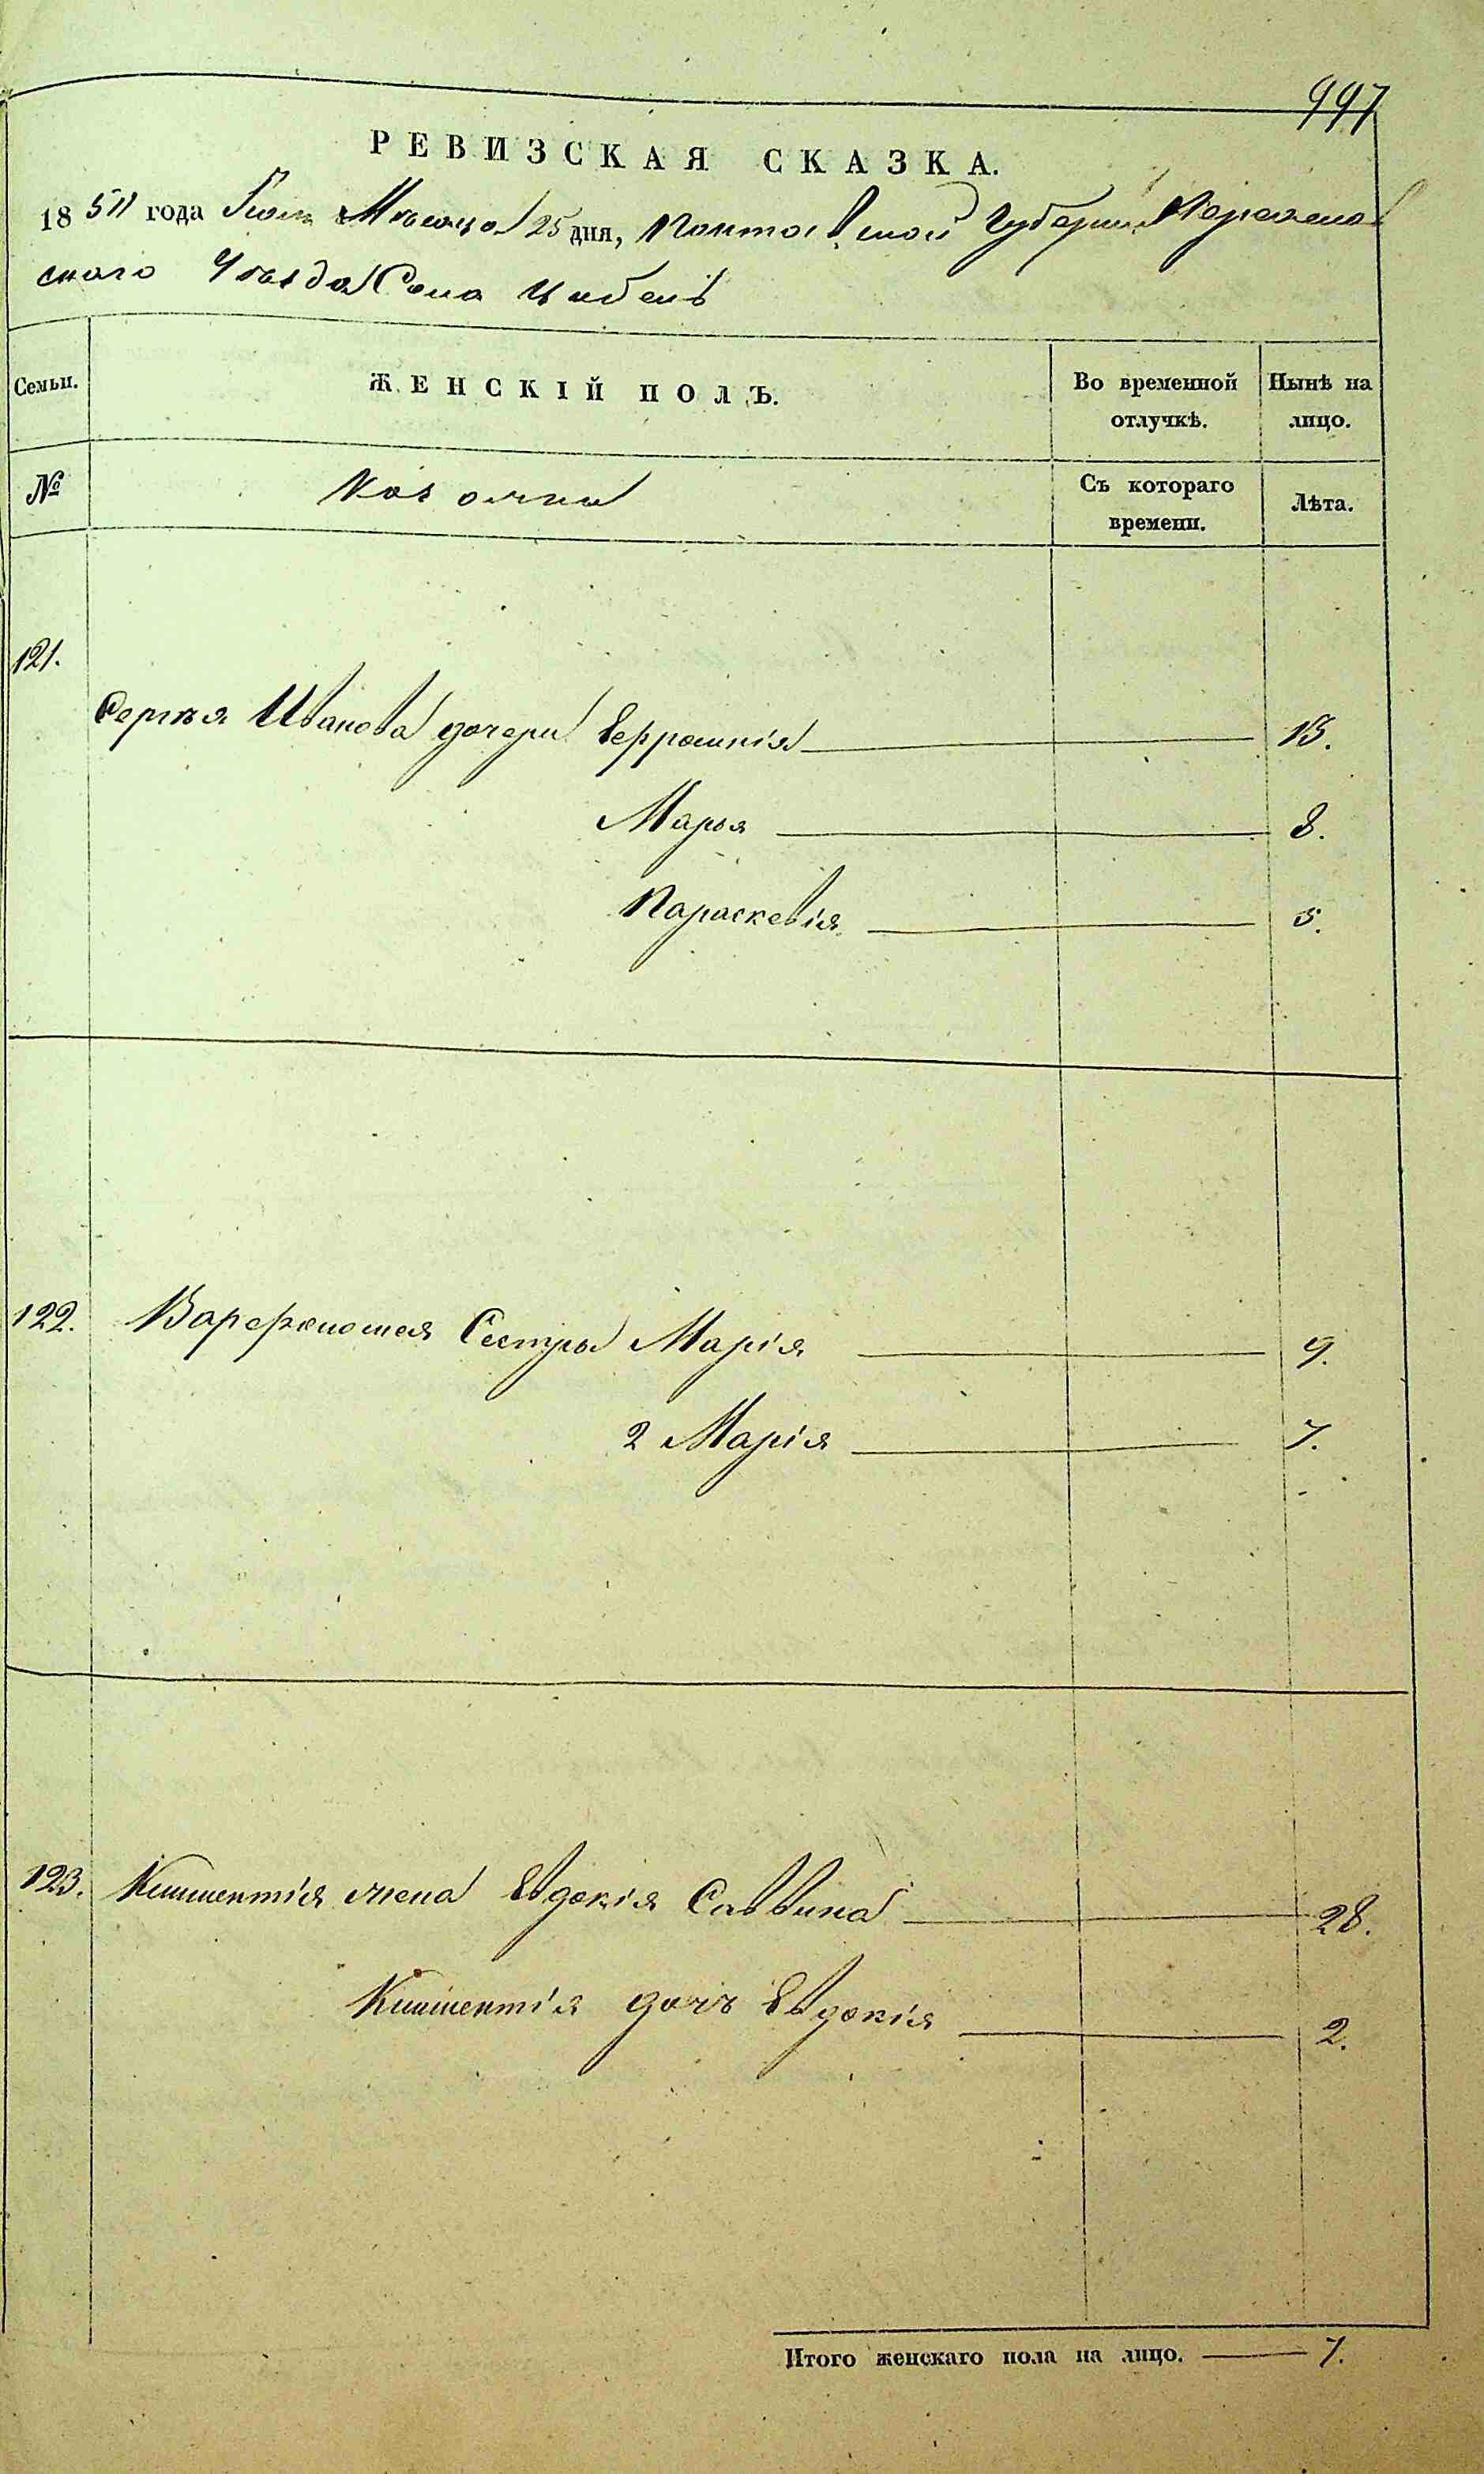 997
РЕВИЗСКАЯ СКАЗКА.
18 50 года Мѣсяца 25 дня, Полтавской Губерніи Переяслав
скаго Уѣзда Села
Семьи. ЖЕНСКІЙ ПОЛЪ. Во временной отлучкѣ. Нынѣ на лицо.
№ Козачки Съ котораго времени. Лѣта.
121.
Сергѣя Иванова дочери Евфросинія 15.
Марья 8.
Параскевія 5.
122. Сестры Марія 9.
2 Марія 7.
123. Климентія жена Евдокія Саввина 28.
Климентія дочь Евдокія 2.
Итого женскаго пола на лицо. 7.